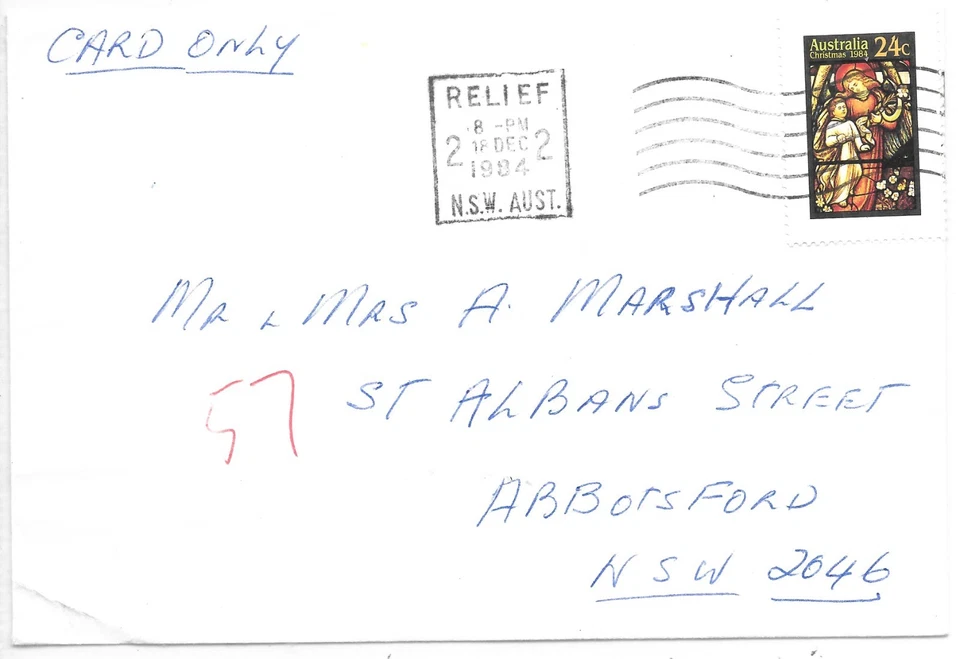 CARD ONLY
Australia 24c
Christmas 1984
RELIEF
8 -PM
2 18 DEC 2
1984
N.S.W. AUST.
MR & MRS A. MARSHALL
57 ST ALBANS STREET
ABBOTSFORD
NSW 2046